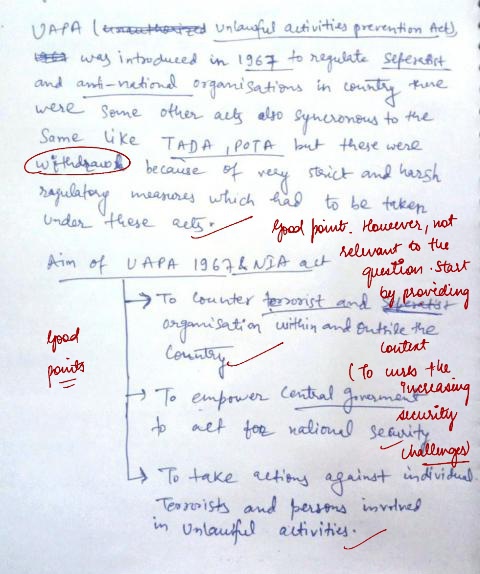 UAPA (unauthorized unlawful activities prevention Act),
1962 was introduced in 1967 to regulate seferetist
and anti-national organisations in country there
were some other acts also syncronous to the
Same like TADA, POTA but these were
withdrawl because of very strict and harsh
ragulatory measures which had to be taken
under these acts.
Good point. However, not
relevant to the
question. Start
by providing
context
(To curb the
increasing
security
challenges)
Aim of UAPA 1967 & NIA act
Good
points
→ To counter terrorist and seferetist
organisation within and outside the
country
→ To empower Central government
to act for national security
→ To take actions against individual
Terrorists and persons involved
in unlawful activities.